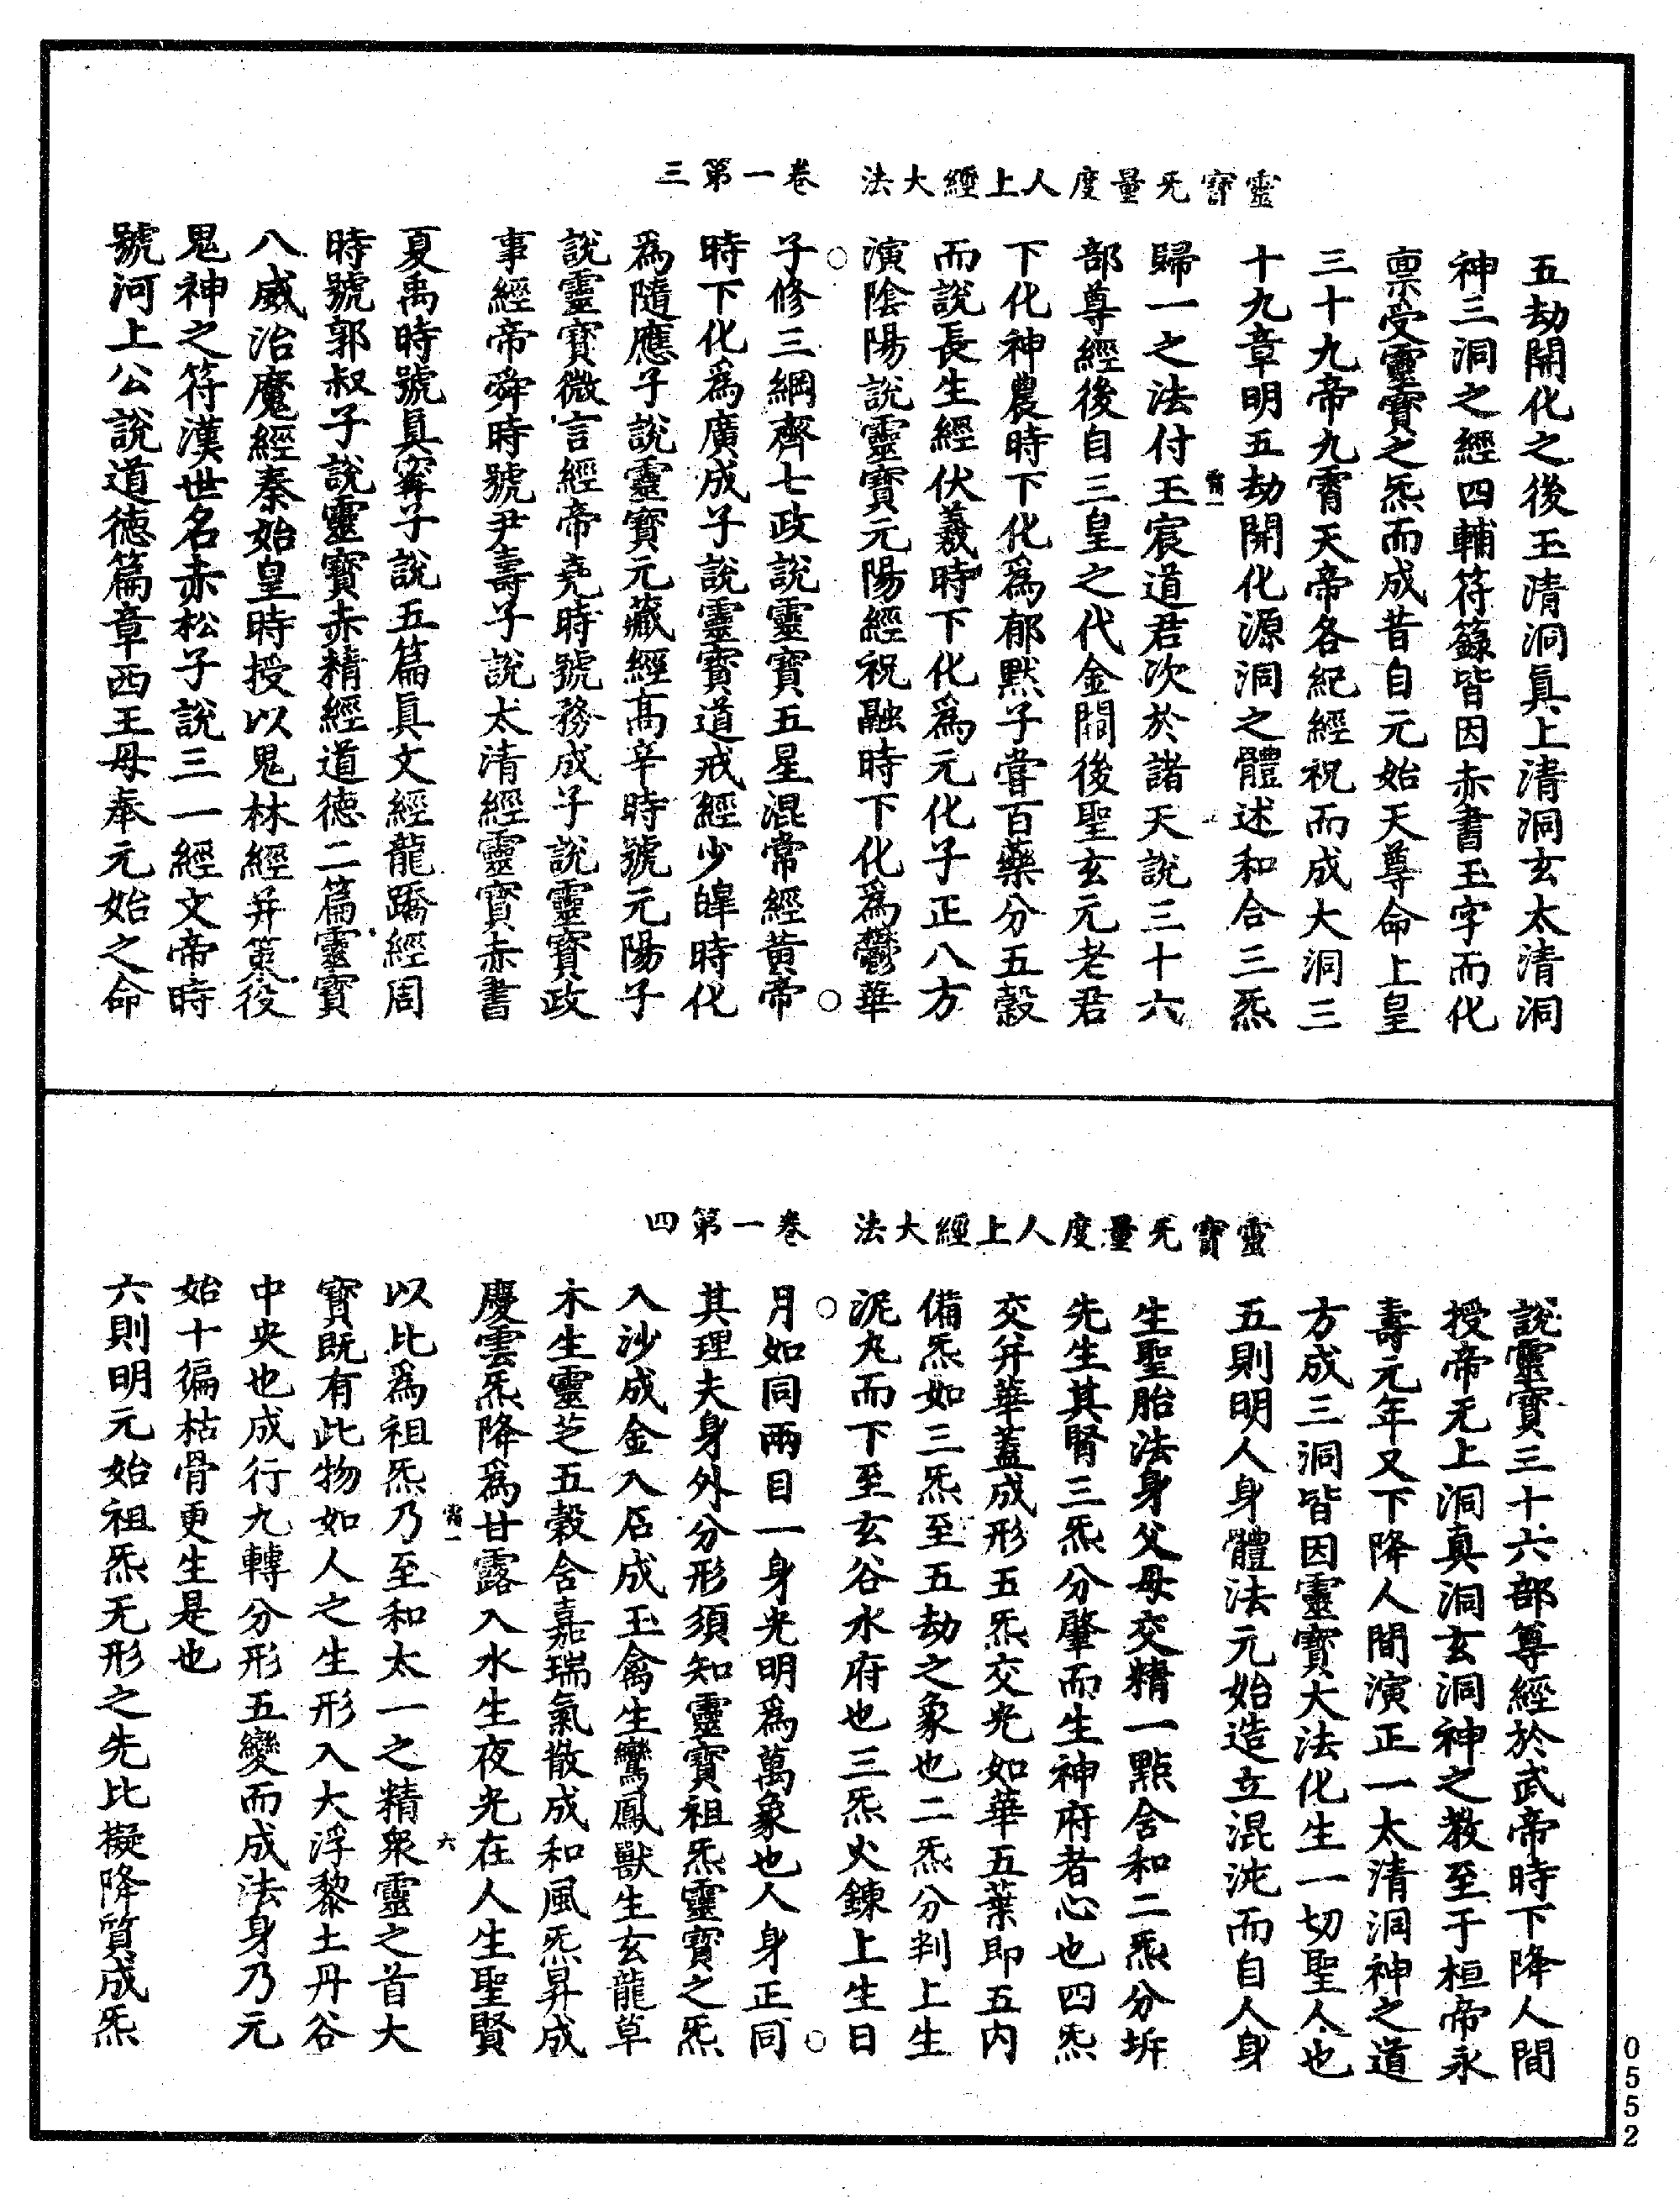 靈寶无量度人上經大法　卷一第三
五劫開化之後玉清洞真上清洞玄太清洞
神三洞之經四輔符籙皆因赤書玉字而化
禀受靈寶之炁而成昔自元始天尊命上皇
三十九帝九霄天帝各紀經祝而成大洞三
十九章明五劫開化源洞之體述和合三炁
歸一之法付玉宸道君次於諸天說三十六
部尊經後自三皇之代金闕後聖玄元老君
下化神農時下化爲郁默子甞百藥分五穀
而說長生經伏羲時下化爲元化子正八方
演陰陽說靈寶元陽經祝融時下化爲鬱華
子修三綱齊七政說靈寶五星混常經黃帝
時下化爲廣成子說靈寶道戒經少皡時化
爲隨應子說靈寶元藏經高辛時號元陽子
說靈寶微言經帝堯時號務成子說靈寶政
事經帝舜時號尹壽子說太清經靈寶赤書
夏禹時號真寗子說五篇真文經龍蹻經周
時號郭叔子說靈寶赤精經道德二篇靈寶
八威治魔經秦始皇時授以鬼林經并策役
鬼神之符漢世名赤松子說三一經文帝時
號河上公說道德篇章西王母奉元始之命
靈寶无量度人上經大法　卷一第四
說靈寶三十六部尊經於武帝時下降人間
授帝无上洞真洞玄洞神之教至于桓帝永
壽元年又下降人間演正一太清洞神之道
方成三洞皆因靈寶大法化生一切聖人也
五則明人身體法元始造立混沌而自人身
生聖胎法身父母交精一點含和二炁分坼
先生其腎三炁分肇而生神府者心也四炁
交并華蓋成形五炁交光如華五葉即五内
備炁如三炁至五劫之象也二炁分判上生
泥丸而下至玄谷水府也三炁火鍊上生日
月如同兩目一身光明爲萬象也人身正同
其理夫身外分形須知靈寶祖炁靈寶之炁
入沙成金入石成玉禽生鸞鳳獸生玄龍草
木生靈芝五穀含嘉瑞氣散成和風炁昇成
慶雲炁降爲甘露入水生夜光在人生聖賢
以比爲祖炁乃至和太一之精衆靈之首大
寶既有此物如人之生形入大浮黎土丹谷
中央也成行九轉分形五變而成法身乃元
始十徧枯骨更生是也
六則明元始祖炁无形之先比擬降質成炁
0552